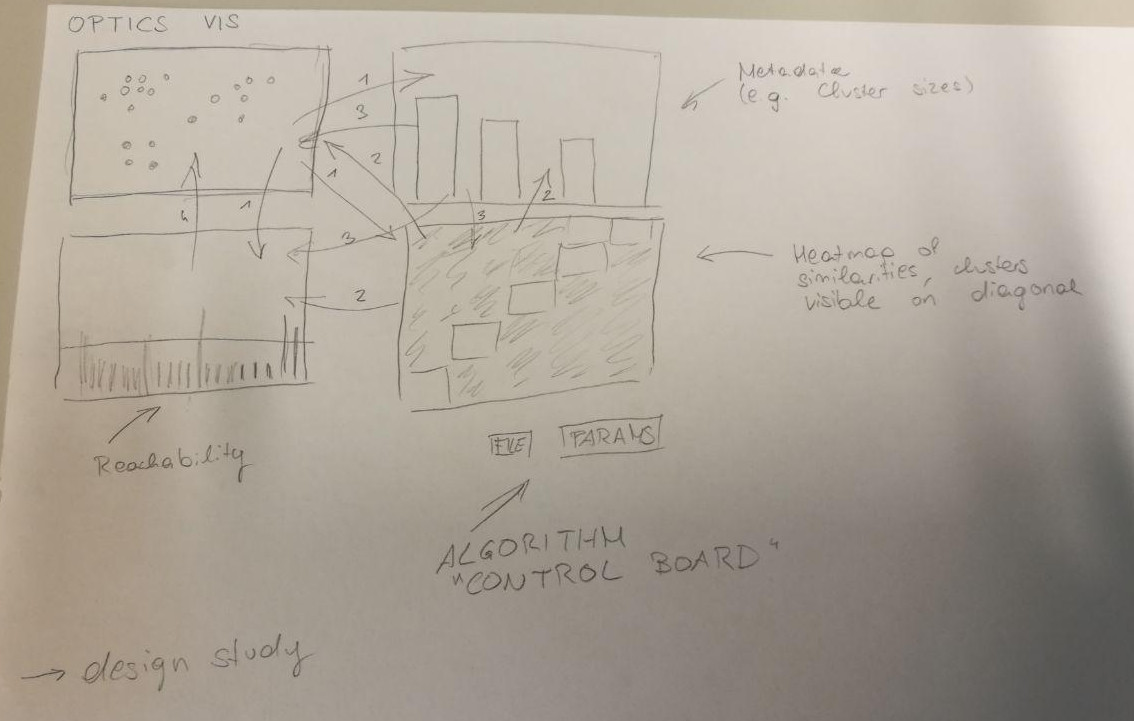 OPTICS VIS
1
3
2
1
4
1
3
3
2
2
Metadata
(e.g. Cluster sizes)
Heatmap of
similarities, clusters
visible on diagonal
Reachability
FILE PARAMS
ALGORITHM
"CONTROL BOARD"
→ design study